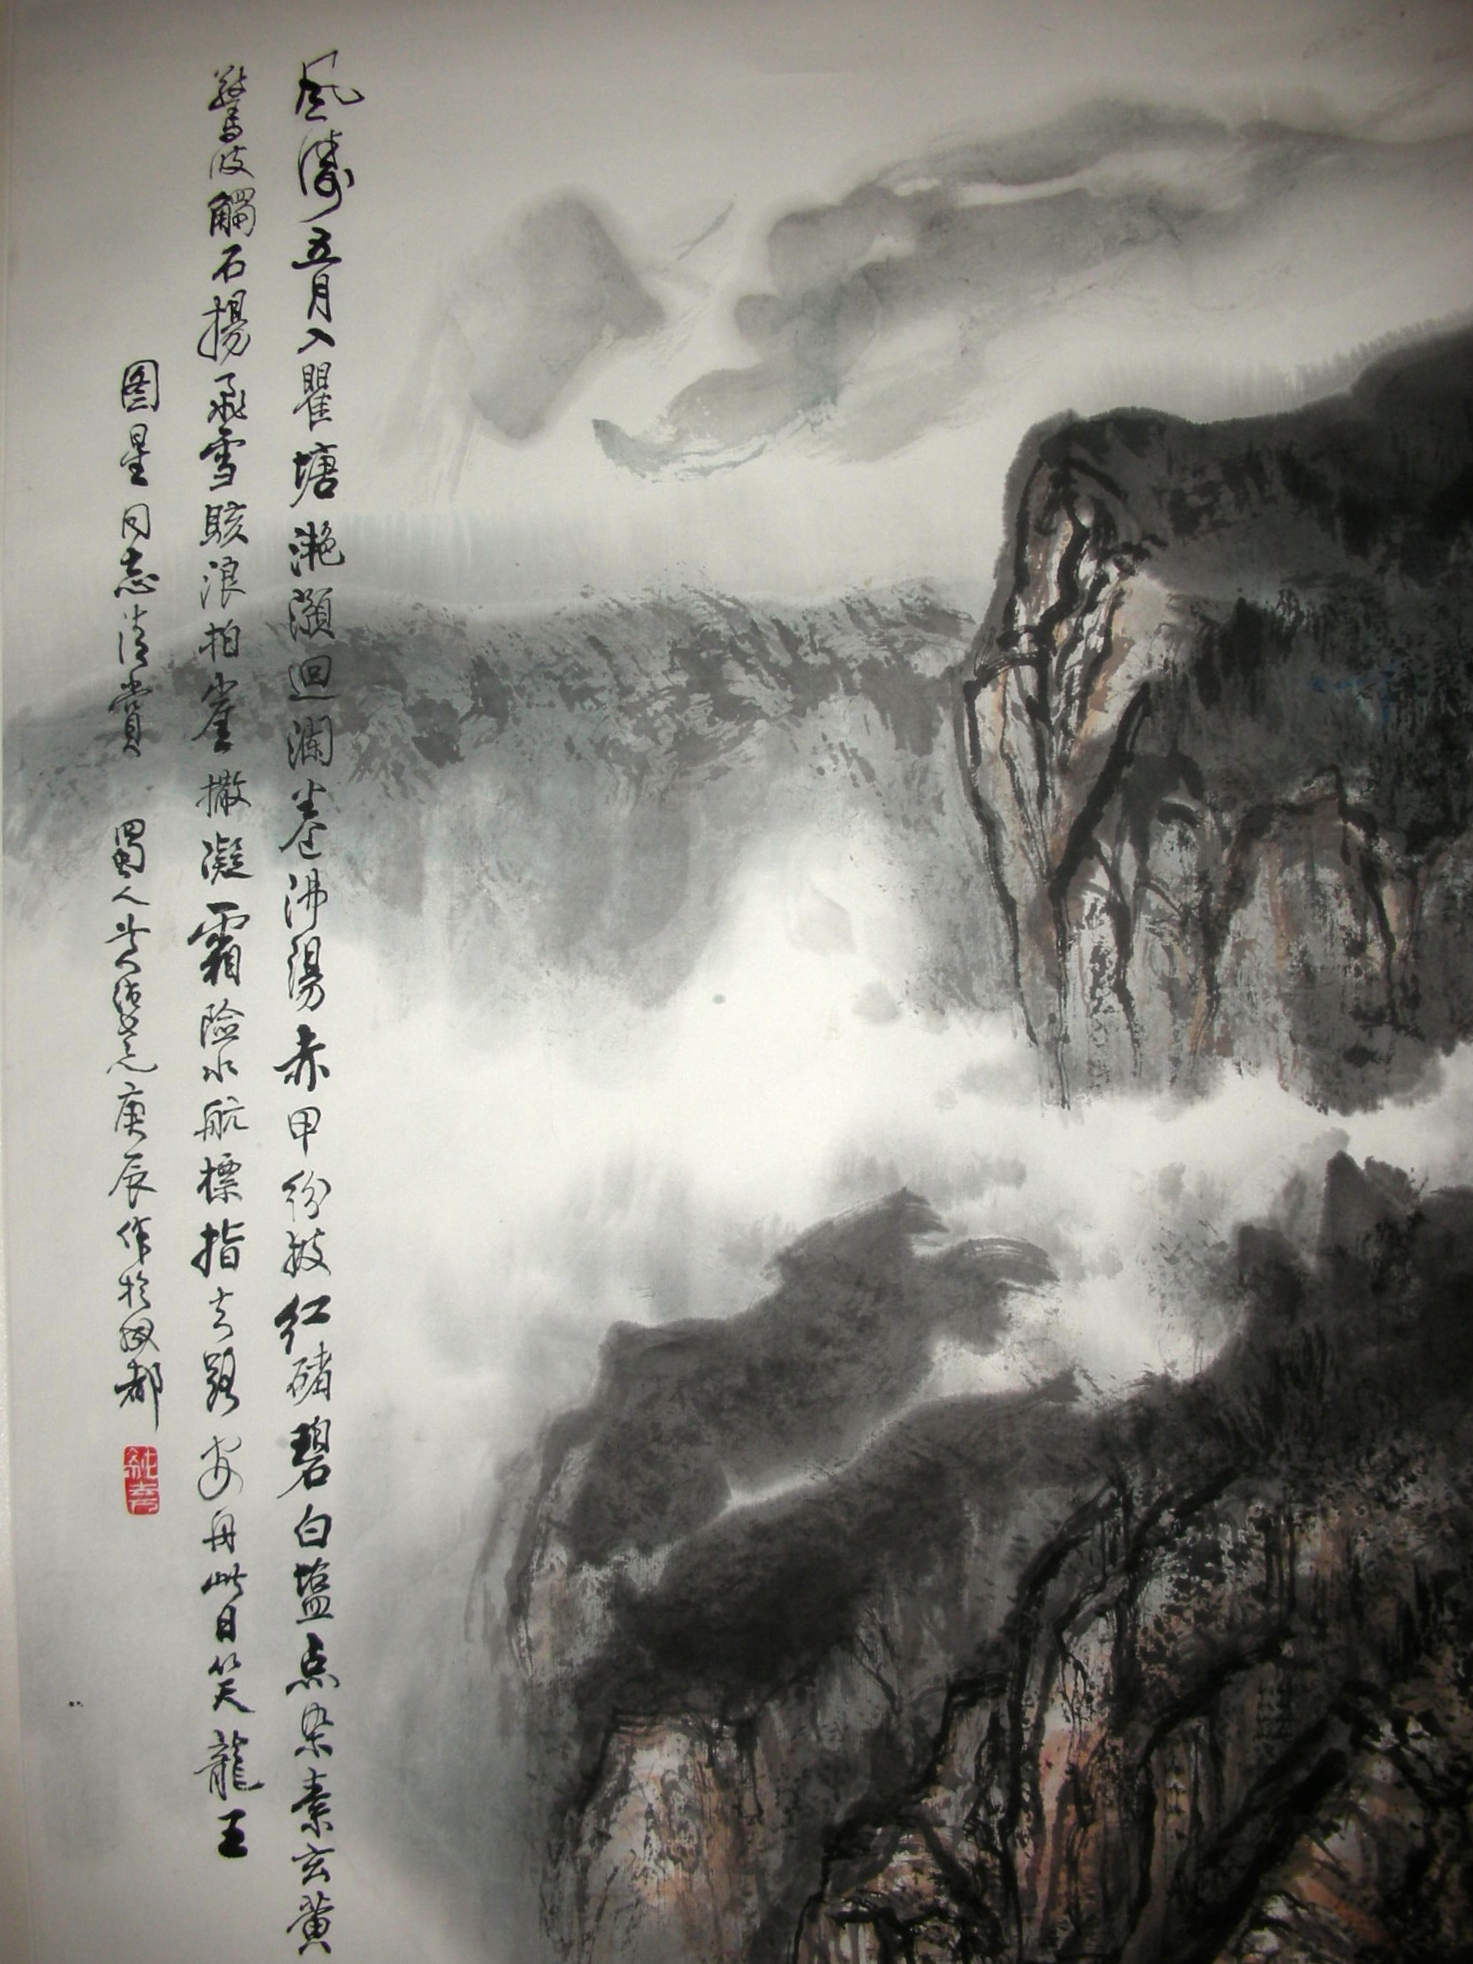 風濤五月入瞿塘灔澦迴瀾卷沸湯赤甲紛披红碏碧白塩点染素玄黄
驚波觸石揚飛雪駭浪拍崖撒凝霜险水航標指去路安舟此日笑龍王
图星同志清賞 蜀人黄纯尧庚辰作於成都
純堯